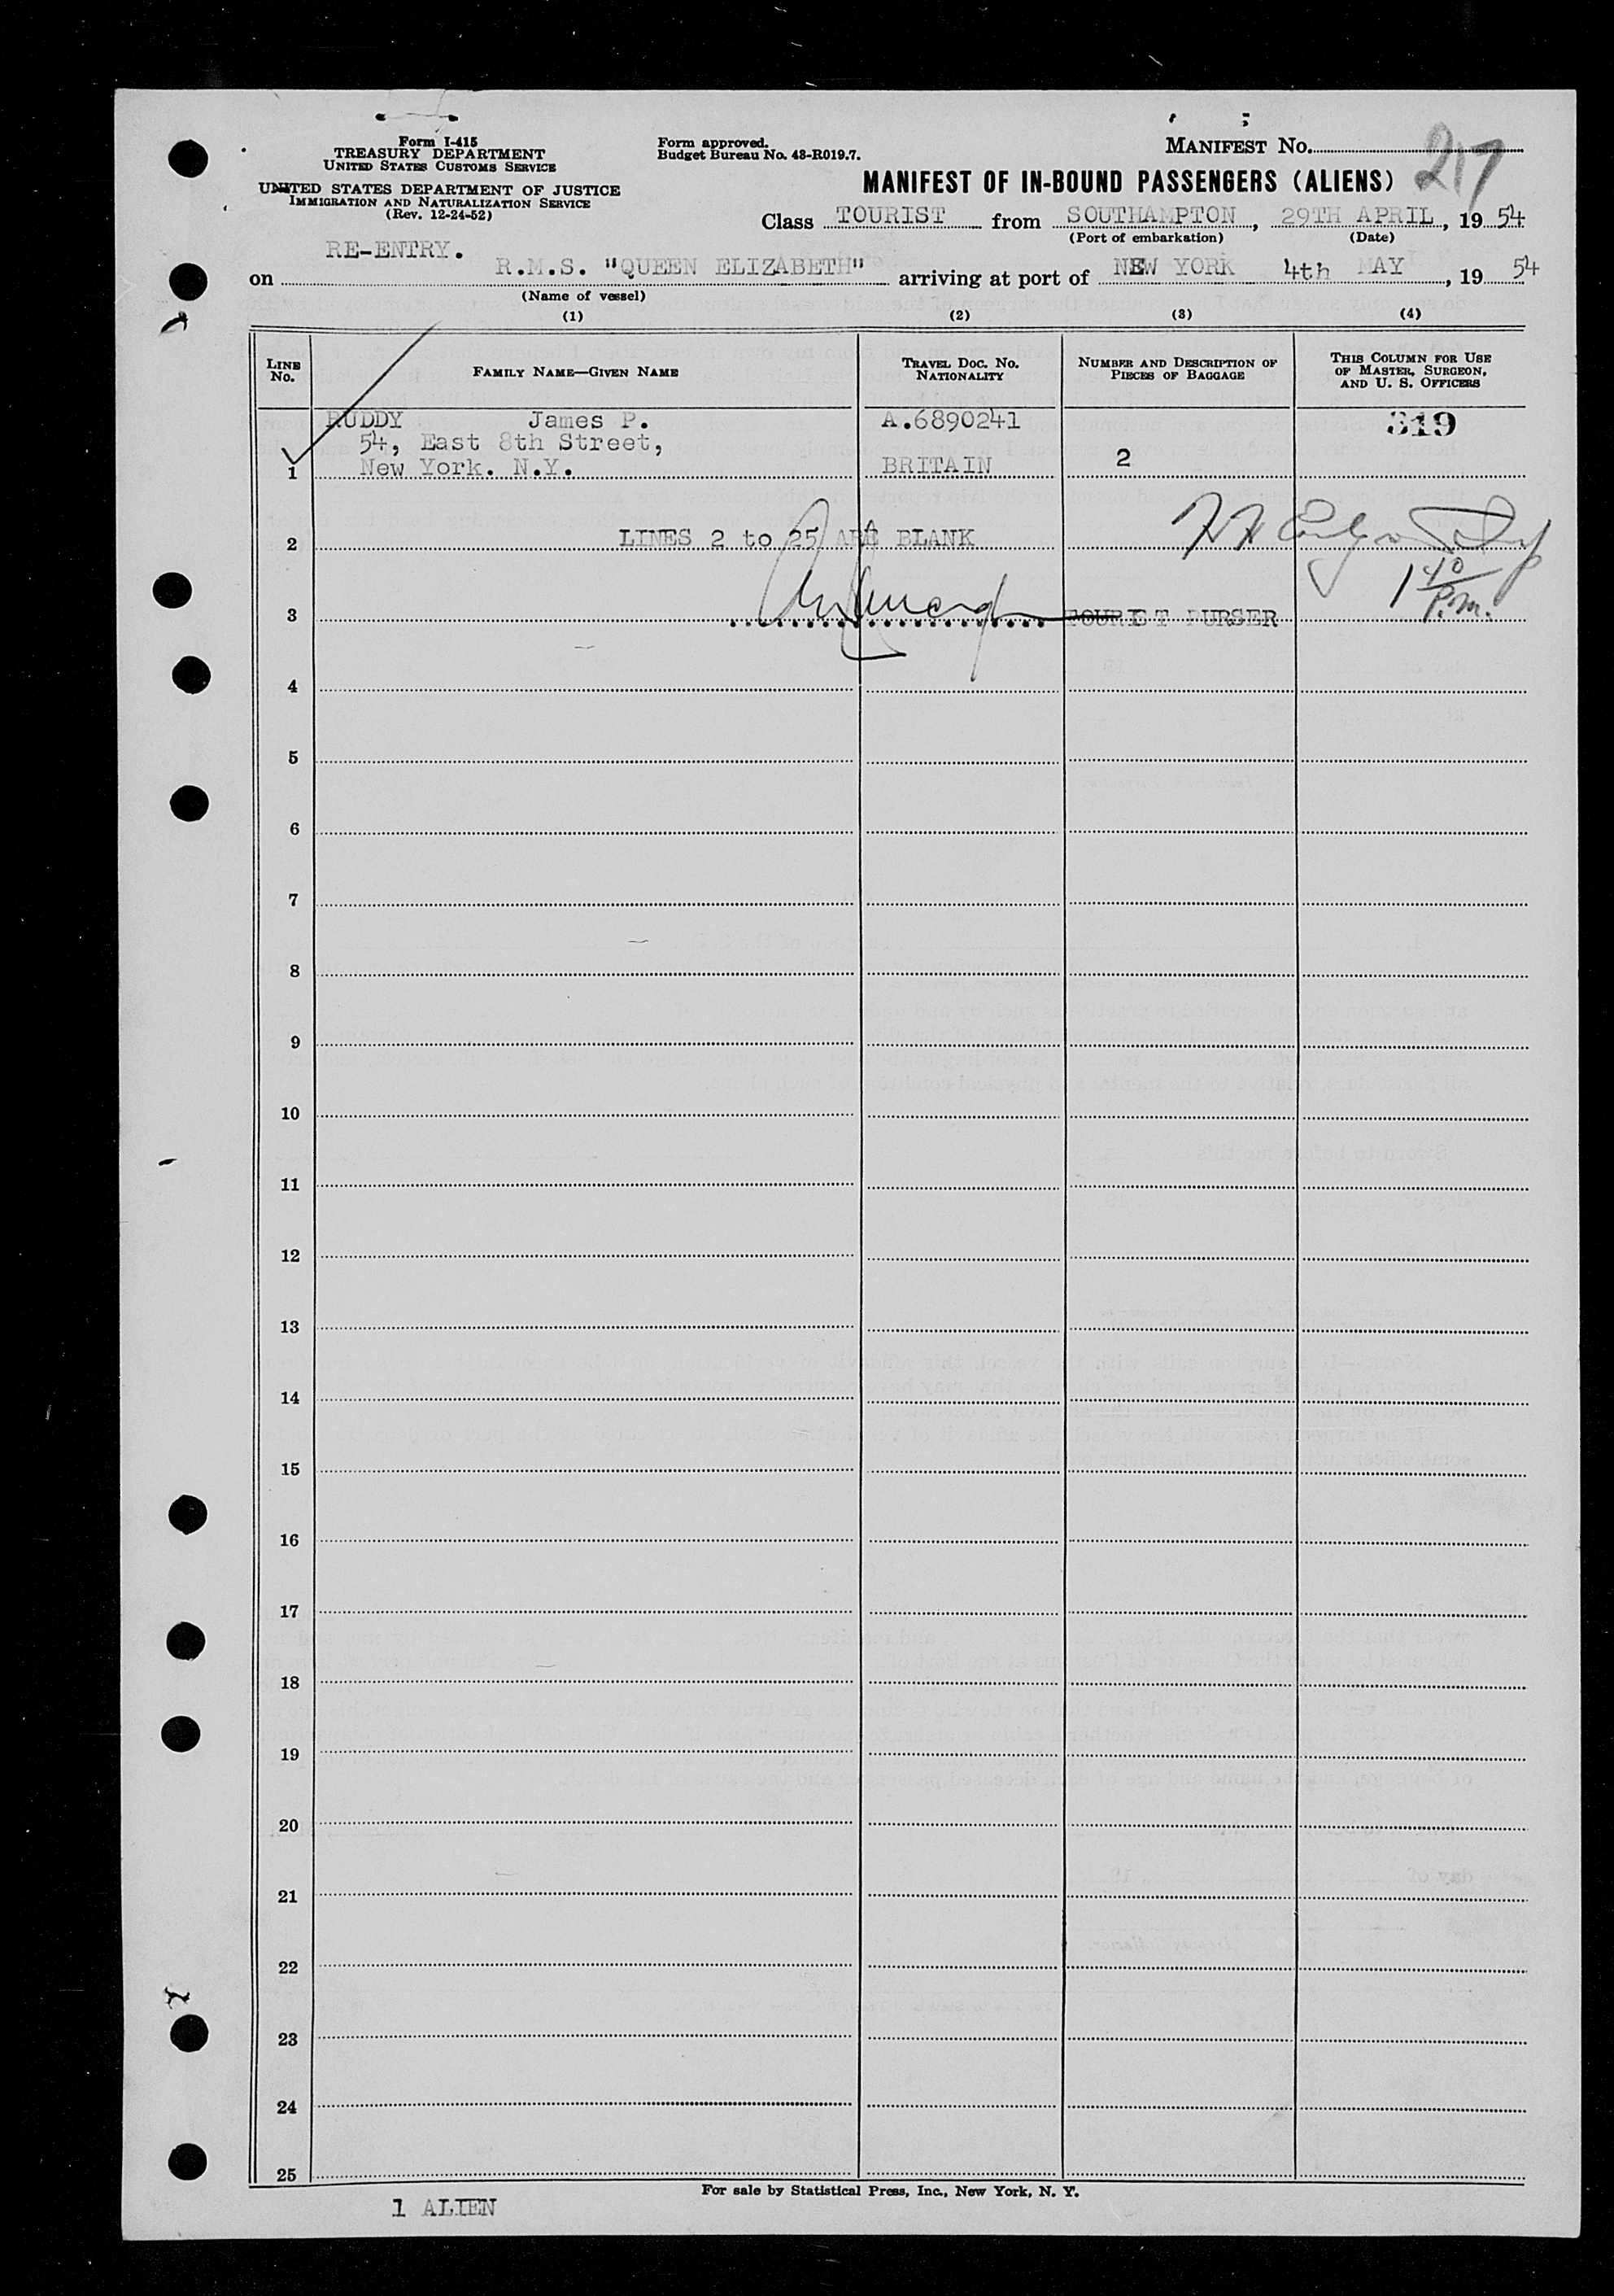 Form I-415
TREASURY DEPARTMENT
UNITED STATES CUSTOMS SERVICE
UNITED STATES DEPARTMENT OF JUSTICE
IMMIGRATION AND NATURALIZATION SERVICE
(Rev. 12-24-52)
Form approved.
Budget Bureau No. 43-R019.7.
MANIFEST NO. 217
MANIFEST OF IN-BOUND PASSENGERS (ALIENS)
Class TOURIST from SOUTHAMPTON, 29TH APRIL, 19 54
(Port of embarkation) (Date)
RE-ENTRY.
on R.M.S. "QUEEN ELIZABETH" arriving at port of NEW YORK 4th MAY, 19 54
(Name of vessel)
(1) (2) (3) (4)
LINE NO. FAMILY NAME—GIVEN NAME TRAVEL DOC. NO. NATIONALITY NUMBER AND DESCRIPTION OF PIECES OF BAGGAGE THIS COLUMN FOR USE OF MASTER, SURGEON, AND U. S. OFFICERS
RUDDY James P. A.6890241 319
54, East 8th Street,
1 New York. N.Y. BRITAIN 2
2 LINES 2 to 25 ARE BLANK
1 40 P.m.
3 TOURIST PURSER
4
5
6
7
8
9
10
11
12
13
14
15
16
17
18
19
20
21
22
23
24
25
For sale by Statistical Press, Inc., New York, N. Y.
1 ALIEN